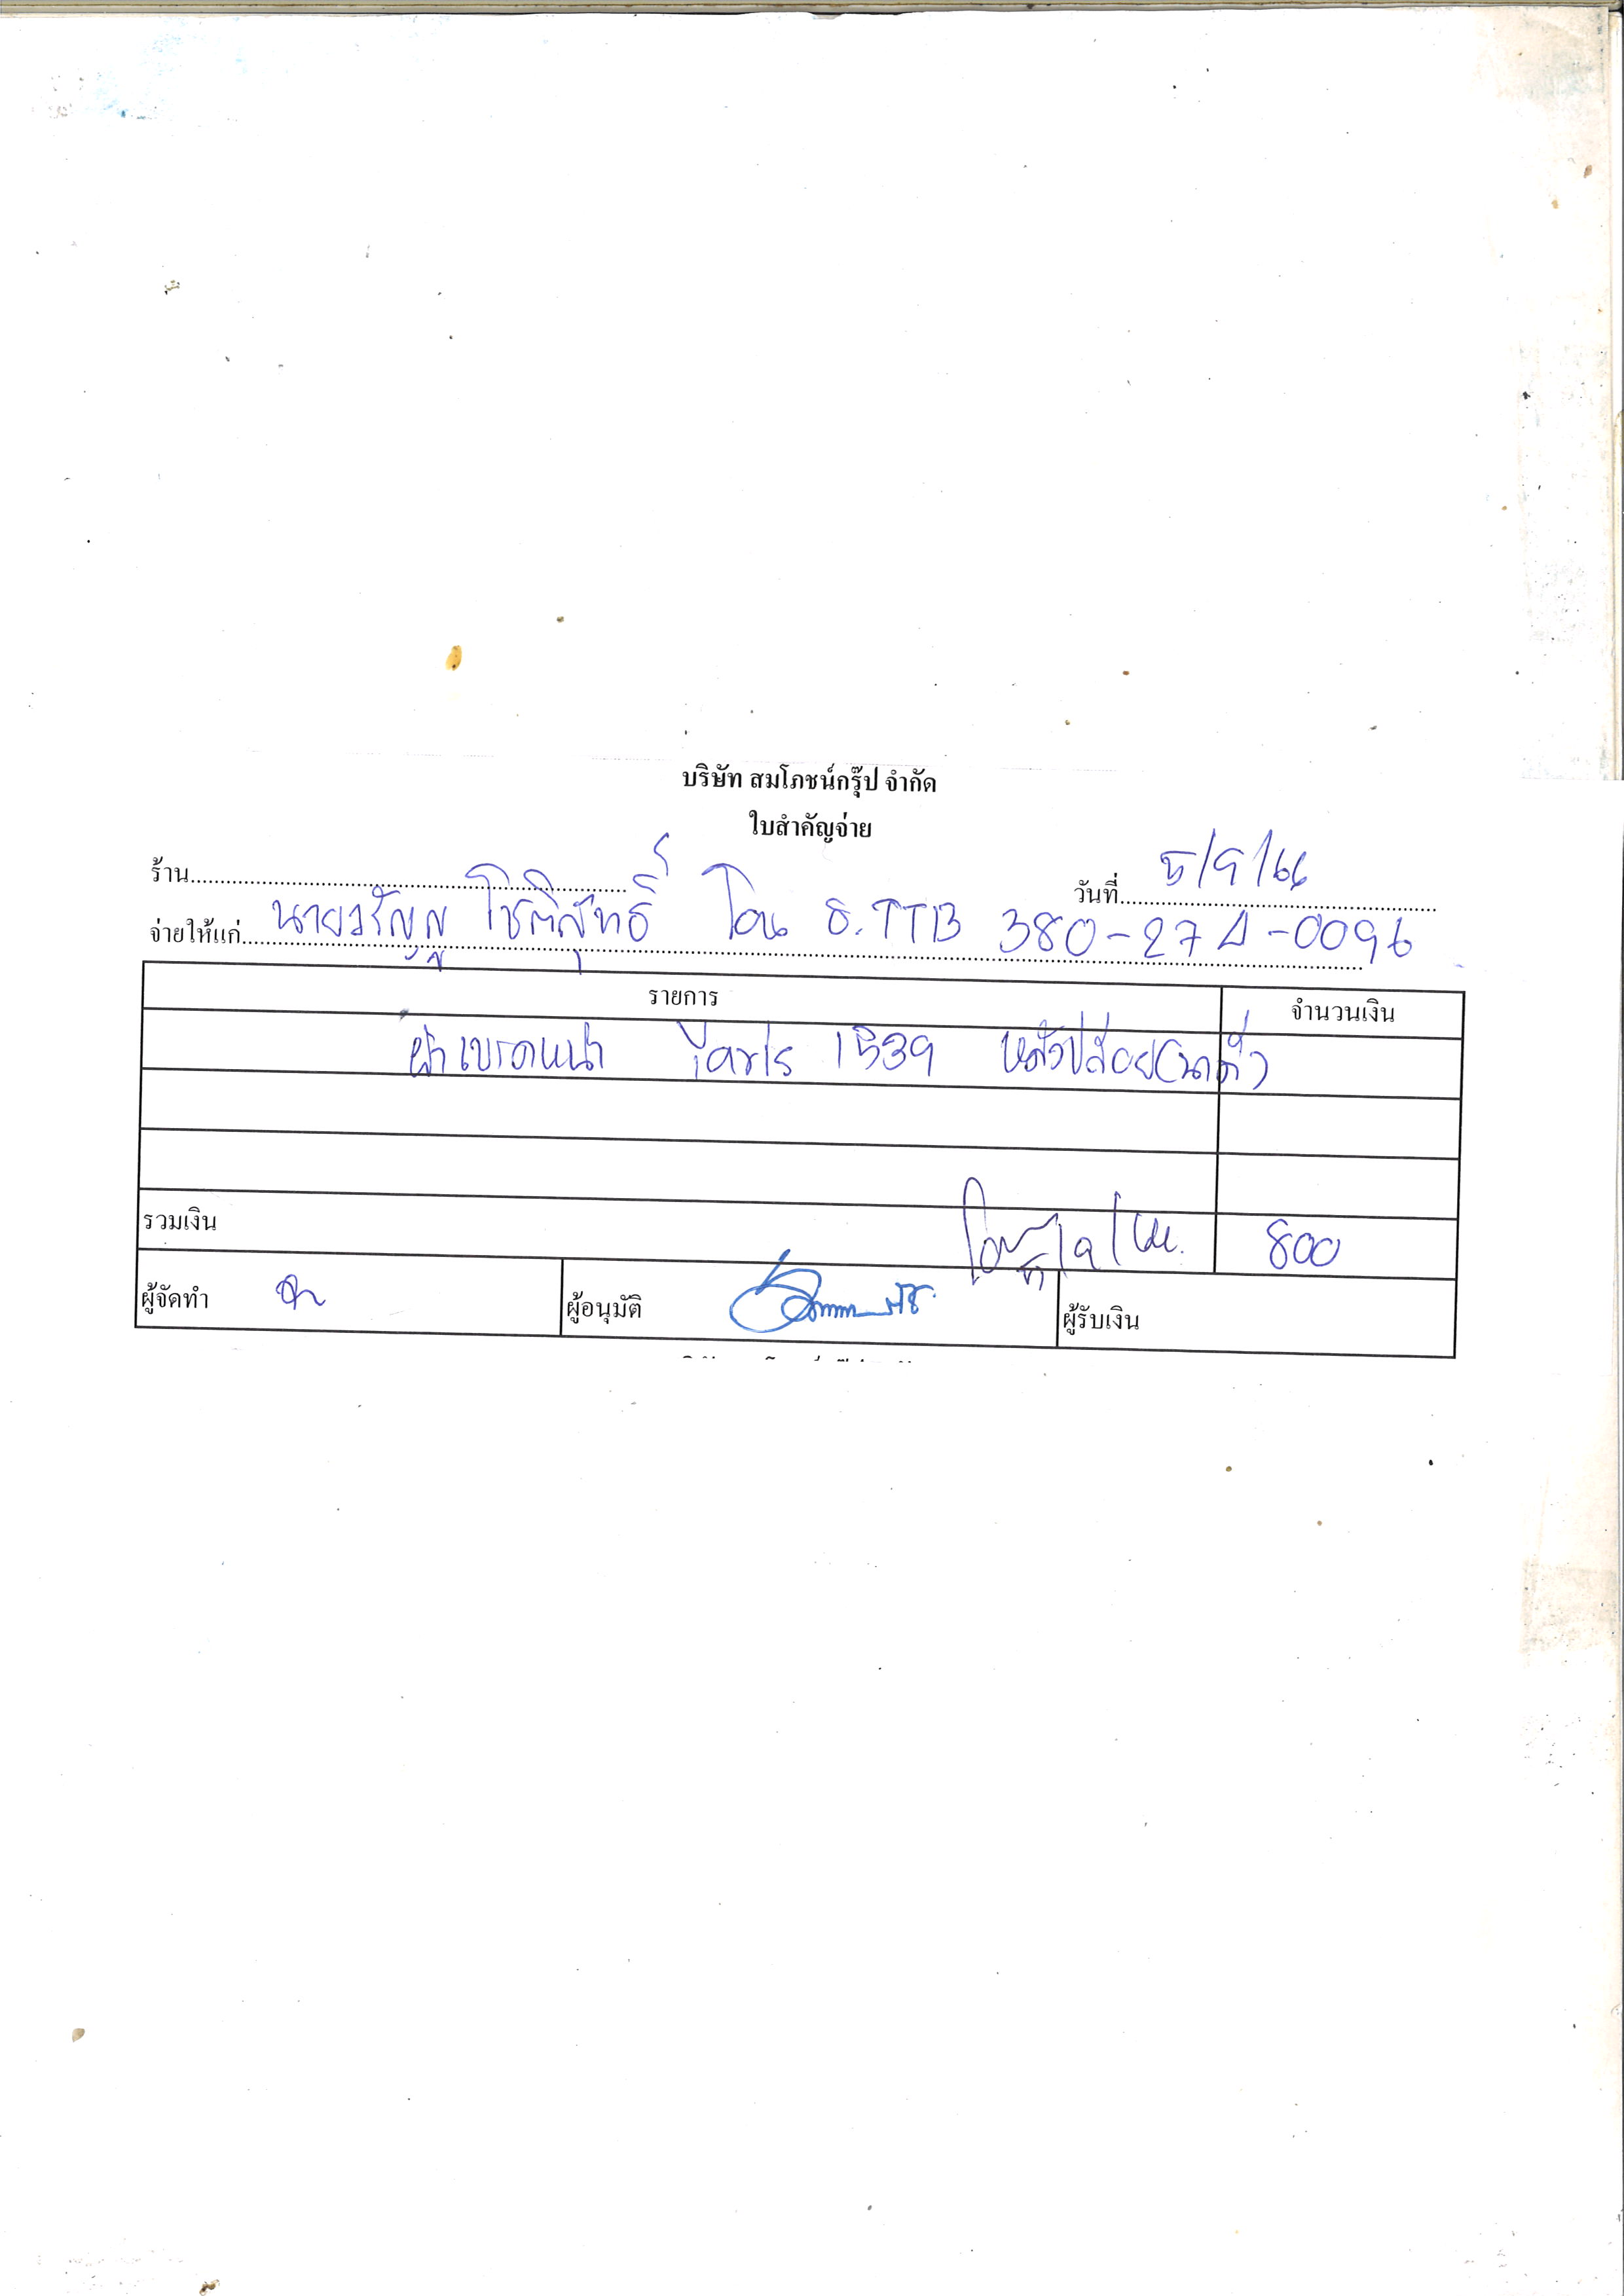 บริษัท สมโภชน์กรุ๊ป จำกัด
ใบสำคัญจ่าย
ร้าน
วันที่ 5/9/66
จ่ายให้แก่ นายวรัญญู โชติสุทธิ์ โอน ธ.TTB 380-274-0096
รายการ จำนวนเงิน
ผ้าเบรคหน้า Yaris 1539 หลังปล่อย
รวมเงิน โอน /9/66. 800
ผู้จัดทำ ผู้อนุมัติ ผู้รับเงิน